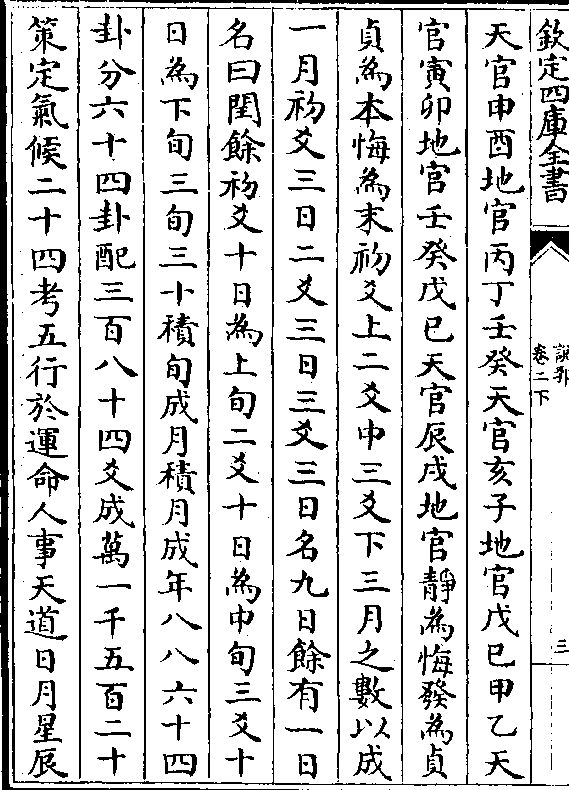 欽定四庫全書
説郛
卷二下
三
天官申酉地官丙丁壬癸天官亥子地官戊巳甲乙天
官寅卯地官壬癸戊巳天官辰戌地官靜為悔發為貞
貞為本悔為末初爻上二爻中三爻下三月之數以成
一月初爻三日二爻三日三爻三日名九日餘有一日
名曰閏餘初爻十日為上旬二爻十日為中旬三爻十
日為下旬三旬三十積旬成月積月成年八八六十四
卦分六十四卦配三百八十四爻成萬一千五百二十
策定氣候二十四考五行於運命人事天道日月星辰